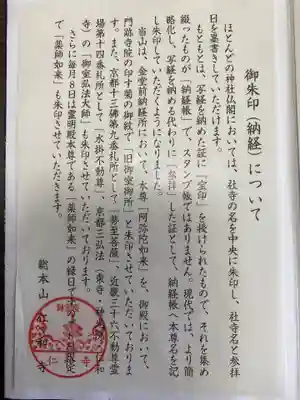 御朱印(納経)について
ほとんどの神社仏閣においては、社寺の名を中央に朱印し、社寺名と参拝
日を墨書きしていただけます。
もともとは、写経を納めた証に「宝印」を授けられたもので、それを集め
綴ったものが「納経帳」で、スタンプ帳ではありません。現代では、より簡
略化し、写経を納める代わりに「参拝」した証として、納経帳へ本尊名を記
し朱印していただくようになりました。
当山は、金堂前納経所において、本尊「阿弥陀如来」を、御殿において、
門跡寺院の印す菊の御紋で「旧御室御所」と朱印させていただいておりま
す。また、京都十三佛第九番札所として「勢至菩薩」、近畿三十六不動尊霊
場第十四番札所として「水掛不動尊」、京都三弘法(東寺・神光院・仁和
寺)の「御室弘法大師」も朱印させていただいております。
さらに毎月8日は霊明殿本尊である「薬師如来」の縁日で
で「薬師如来」も朱印させていただきます。
総本山 仁和寺